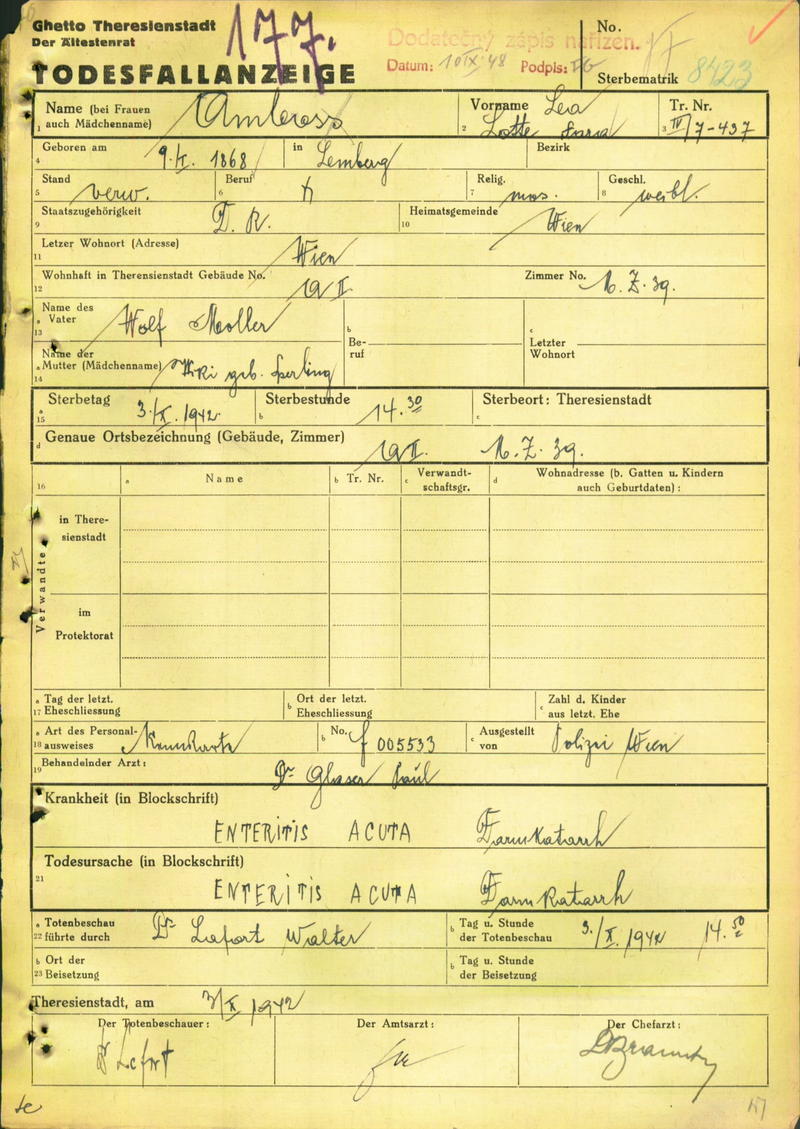 Ghetto Theresienstadt
Der Ältestenrat
177.
Dodatečný zápis nařízen.
Datum: 10 IX 48 Podpis:
No.
TODESFALLANZEIGE
Sterbematrik 8423
Name (bei Frauen
1 auch Mädchenname) Ambross
Vorname Lea
2 Lotte Sara
Tr. Nr.
3 IV/7-437
Geboren am 9.II. 1868 in Lemberg Bezirk
4
Stand Beruf Relig. Geschl.
5 verw. 6 7 mos. 8 weibl.
Staatszugehörigkeit D. R. Heimatsgemeinde Wien
9 10
Letzer Wohnort (Adresse) Wien
11
Wohnhaft in Therensienstadt Gebäude No. Zimmer No. 39.
12
Name des
a Vater Wolf Moller
13
b
Be-
ruf
c
Letzter
Wohnort
Name der
a Mutter (Mädchenname) geb. Sperling
14
a Sterbetag 3./X. 1942 Sterbestunde 14.30 Sterbeort: Theresienstadt
15 b c
d Genaue Ortsbezeichnung (Gebäude, Zimmer) 39.
16 a Name b Tr. Nr. c Verwandt-
schaftsgr. d Wohnadresse (b. Gatten u. Kindern
auch Geburtdaten) :
Verwandte
in There-
sienstadt
im
Protektorat
a Tag der letzt.
17 Eheschliessung
b Ort der letzt.
Eheschliessung
c Zahl d. Kinder
aus letzt. Ehe
a Art des Personal-
18 ausweises Kennkarte
b No. J 005533
c Ausgestellt
von Polizei Wien
Behandelnder Arzt:
19 Dr Glaser Paul
Krankheit (in Blockschrift)
ENTERITIS ACUTA Darmkatarrh
Todesursache (in Blockschrift)
21 ENTERITIS ACUTA Darmkatarrh
a Totenbeschau
22 führte durch Dr Lefort Walter
b Tag u. Stunde
der Totenbeschau 3./X. 1942 14.50
b Ort der
23 Beisetzung
b Tag u. Stunde
der Beisetzung
Theresienstadt, am 3/X 1942
Der Totenbeschauer: Der Amtsarzt: Der Chefarzt:
Dr Lefort